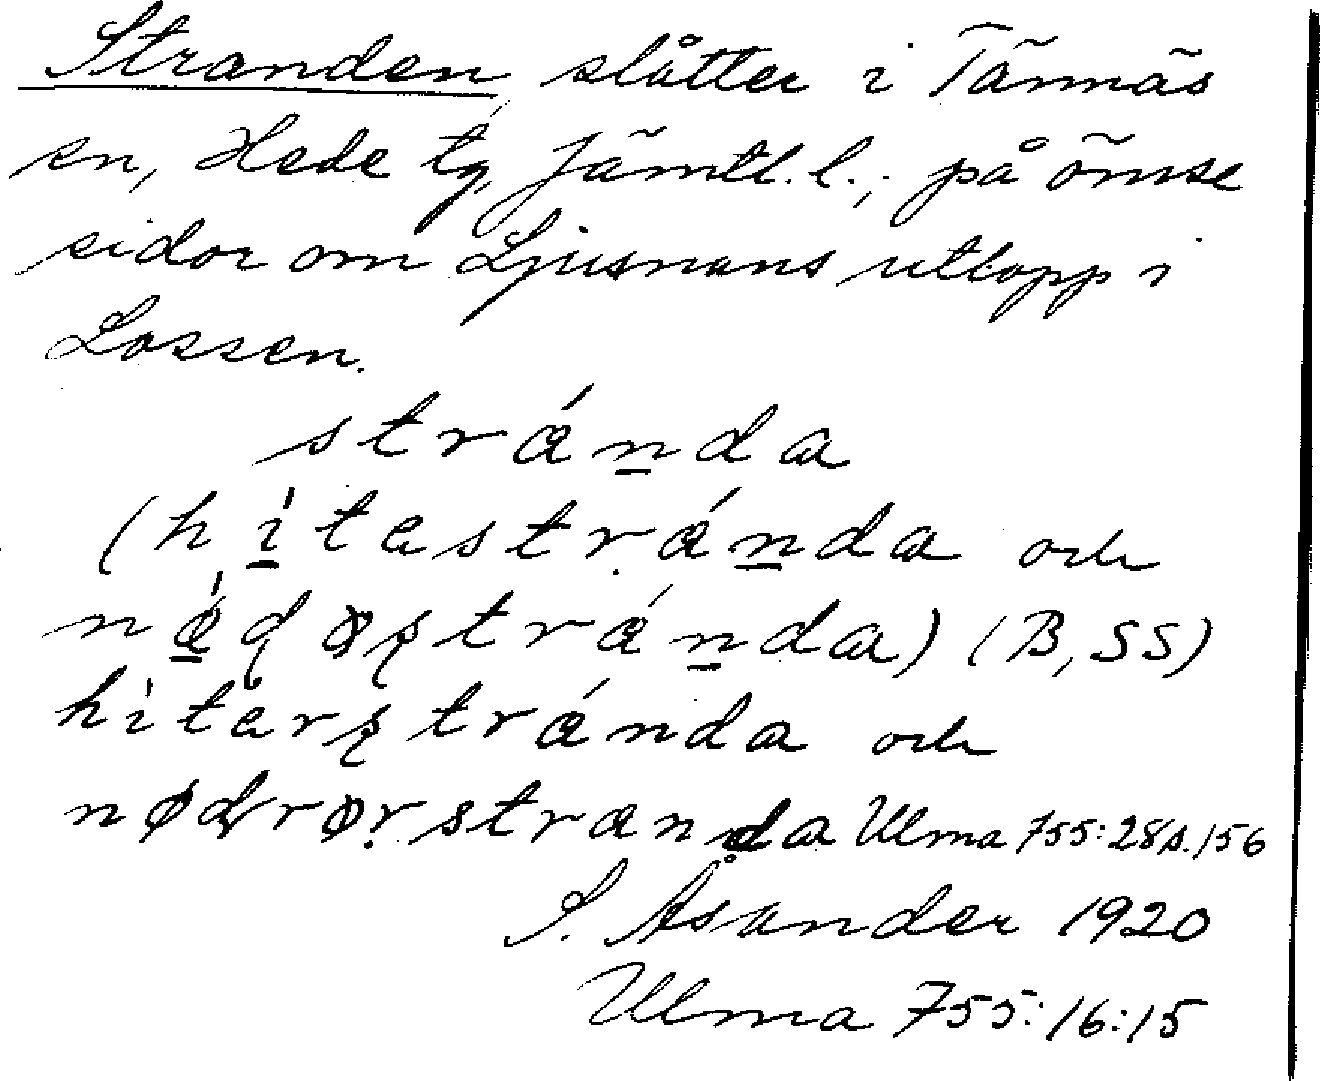 Stranden, slåtter i Tännäs
sn, Hede tg, Jämtl. l.; på ömse
sidor om Ljusnans utlopp i
Lossen.
stránda
(hítestránda och
nǿdøstránda) (B, SS)
hiterstránda och
nødrørstranda Ulma 755:28 s. 156
S. Åsander 1920
Ulma 755:16:15